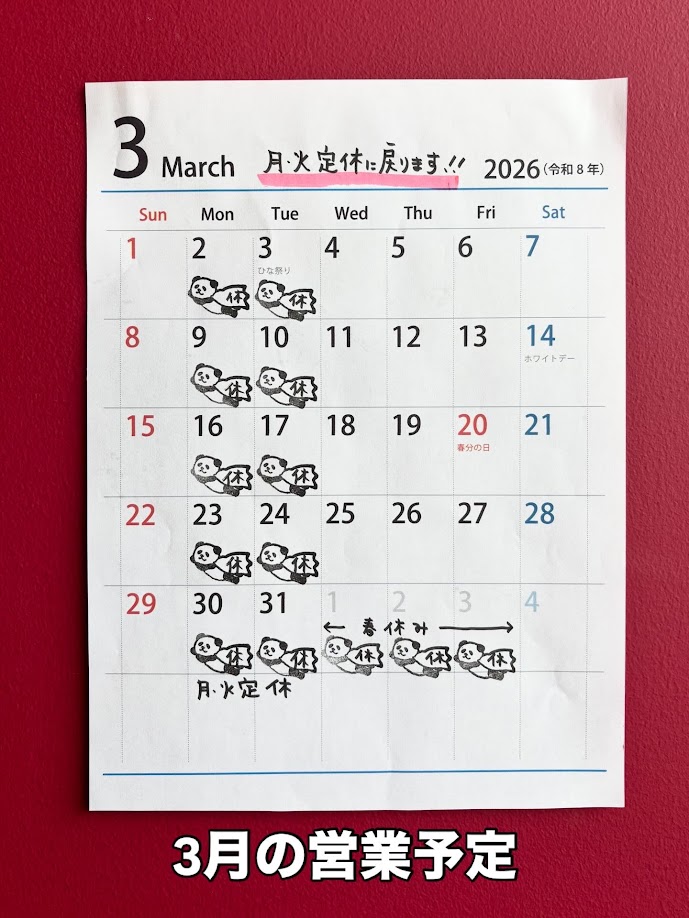 3 March 月・火 定休に戻ります!! 2026(令和8年)
Sun Mon Tue Wed Thu Fri Sat
1 2 3 4 5 6 7
ひな祭り
休 休
8 9 10 11 12 13 14
ホワイトデー
休 休
15 16 17 18 19 20 21
春分の日
休 休
22 23 24 25 26 27 28
休 休
29 30 31 1 2 3 4
← 春休み →
休 休 休 休 休
月・火定休
3月の営業予定